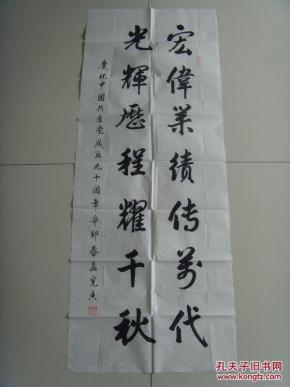 宏偉業績传萬代
光輝歷程耀千秋
慶祝中國共產党成立九十周年辛卯春孟宪惠
孔夫子旧书网